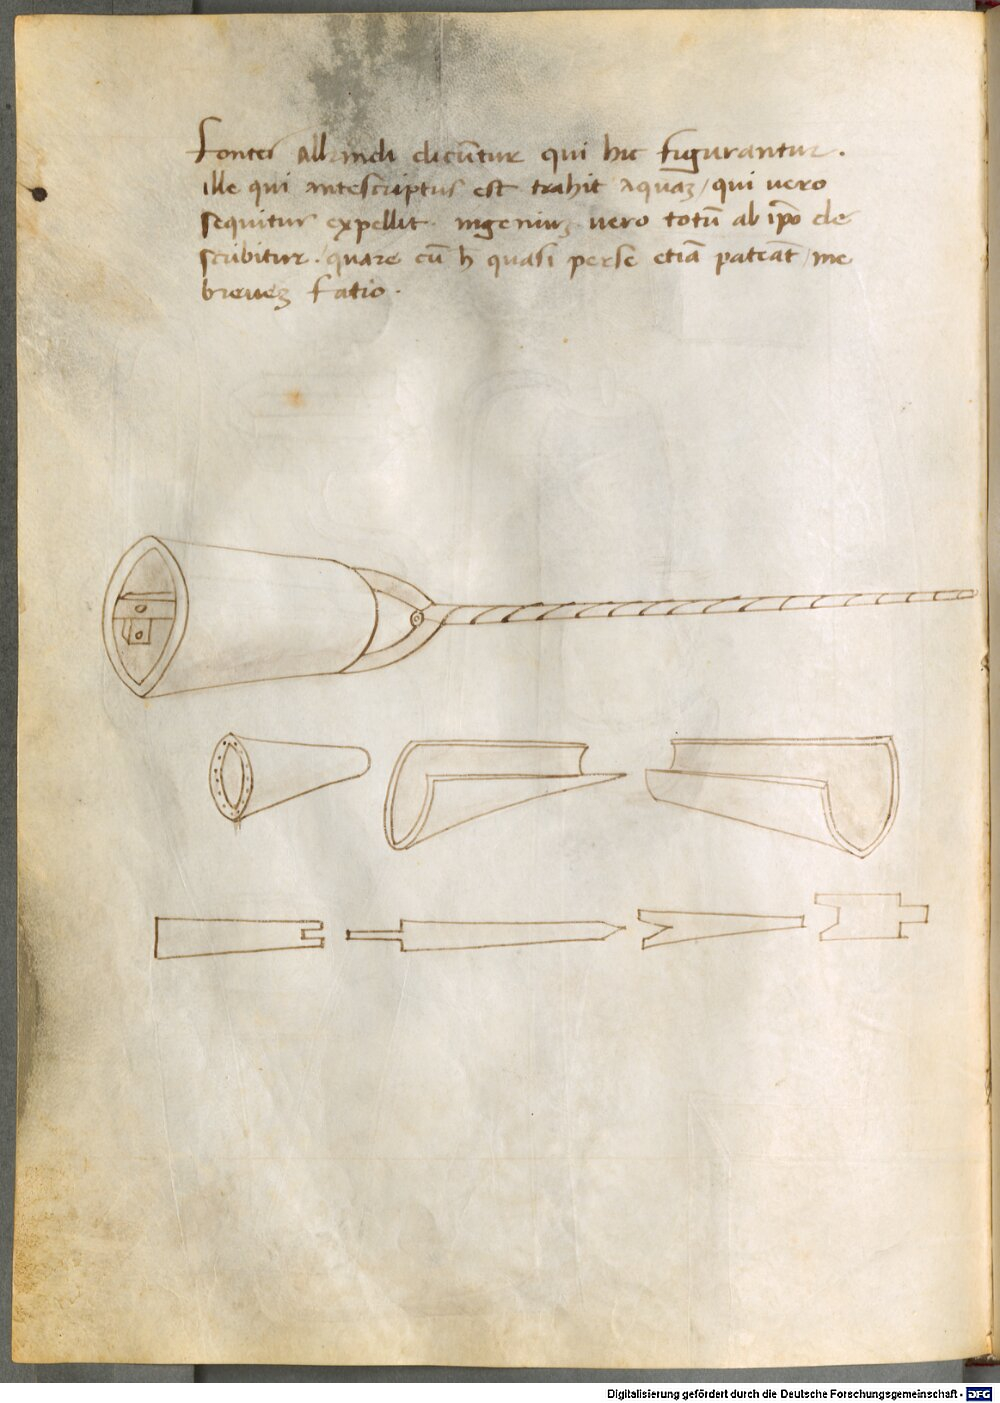 Fontes Alkindi dicūntur qui hic figurantur.
ille qui antescriptus est trahit aquaꝫ / qui vero
sequitur expellit. ingeniuꝫ vero totū ab ip̄o de
scribitur. quare cū h̄ quasi perse etiā pateāt / me
breueꝫ fatio.
Digitalisierung gefördert durch die Deutsche Forschungsgemeinschaft - DFG